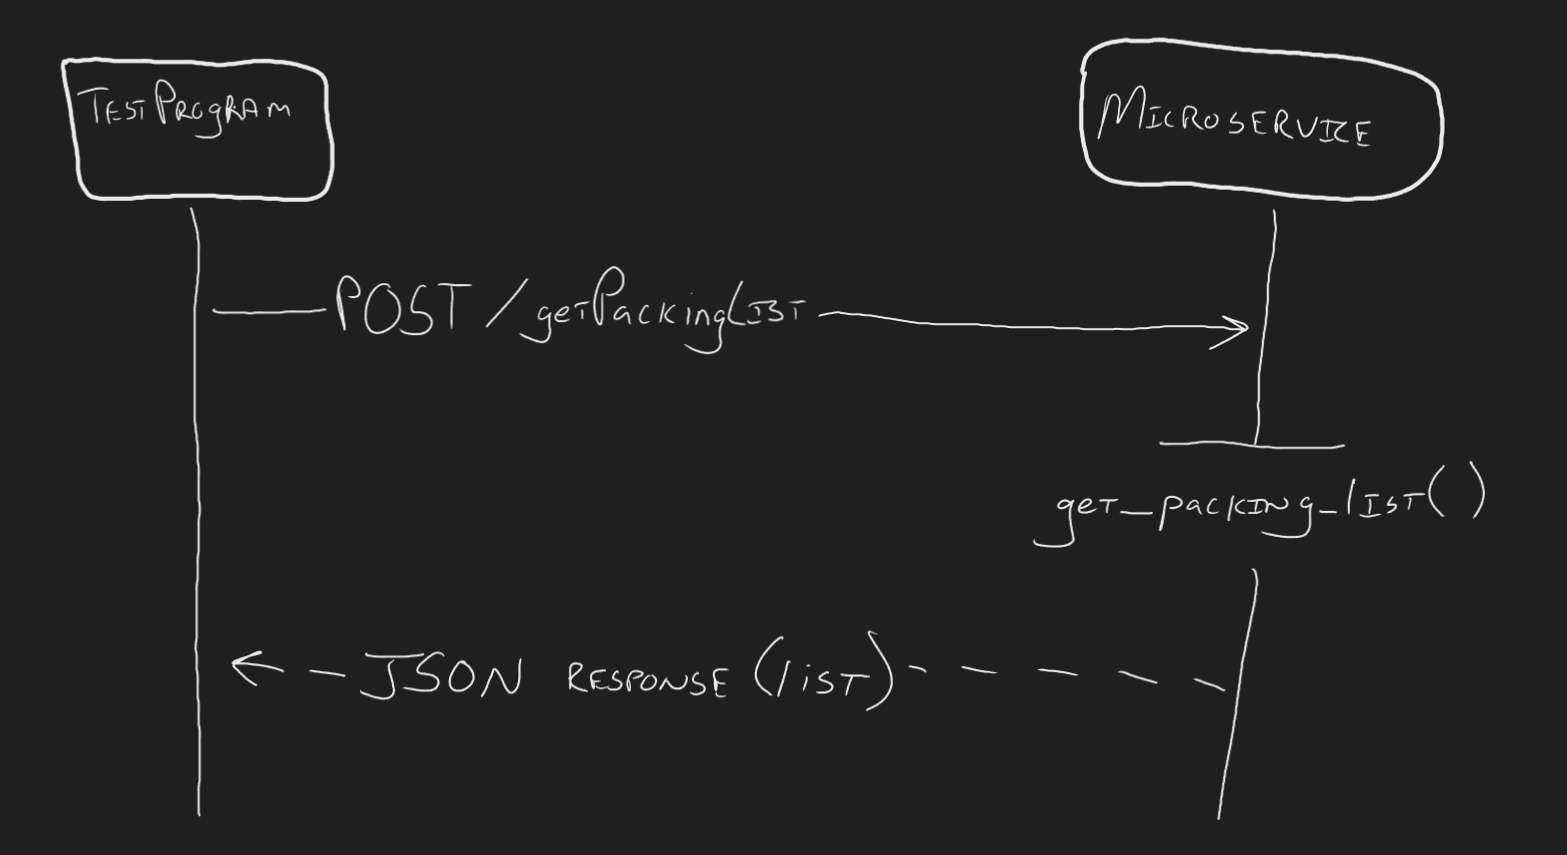 TestProgram
Microservice
POST /getPackingList
get_packing_list()
JSON response (list)